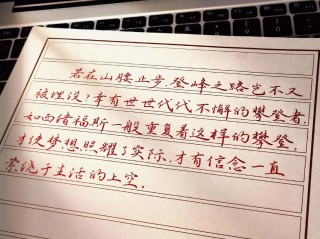 若在山腰止步,登峰之路岂不又
被埋没?幸有世世代代不懈的攀登者,
如西绪福斯一般重复着这样的攀登,
才使梦想照耀了实际,才有信念一直
萦绕于生活的上空.